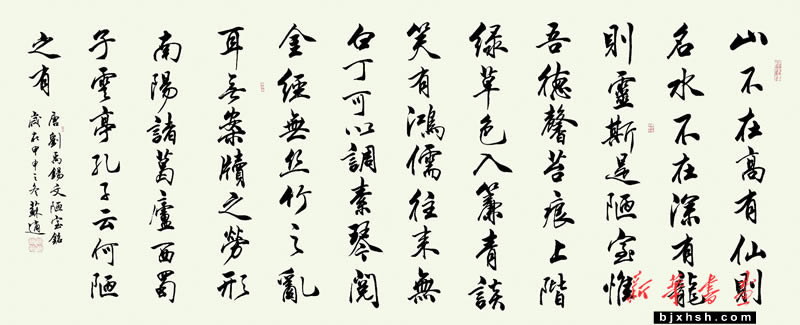 山不在高有仙則
名水不在深有龍
則靈斯是陋室惟
吾德馨苔痕上階
綠草色入簾青談
笑有鴻儒往來無
白丁可以調素琴閱
金經無丝竹之亂
耳无案牘之勞形
南陽諸葛廬西蜀
子雲亭孔子云何陋
之有
唐劉禹錫文陋室銘
歲在甲申之冬蘇適
新華書画
bjxhsh.com